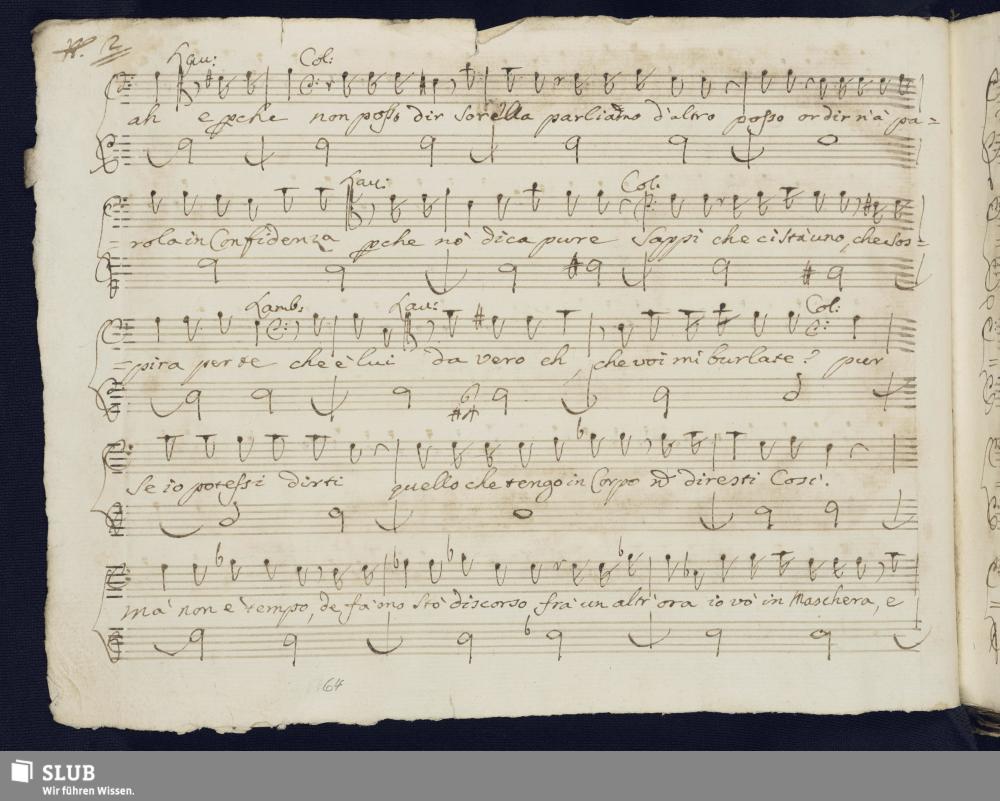 N. 2
Lau: Col:
ah e pche non posso dir sorella parliamo d'altro posso ordirn'à pa=
Lau: Col:
=rola in Confidenza pche nò dica pure Sappi che ci stà uno, che sos=
Lamb: Lau: Col:
=pira per te che è lui da vero eh, che voi mi burlate? pur
se io potessi dirti quello che tengo in Corpo nõ diresti Così.
Mà non è tempo, de, fà mo stò discorso frà un altr'ora io vò in Maschera, e
64
SLUB
Wir führen Wissen.